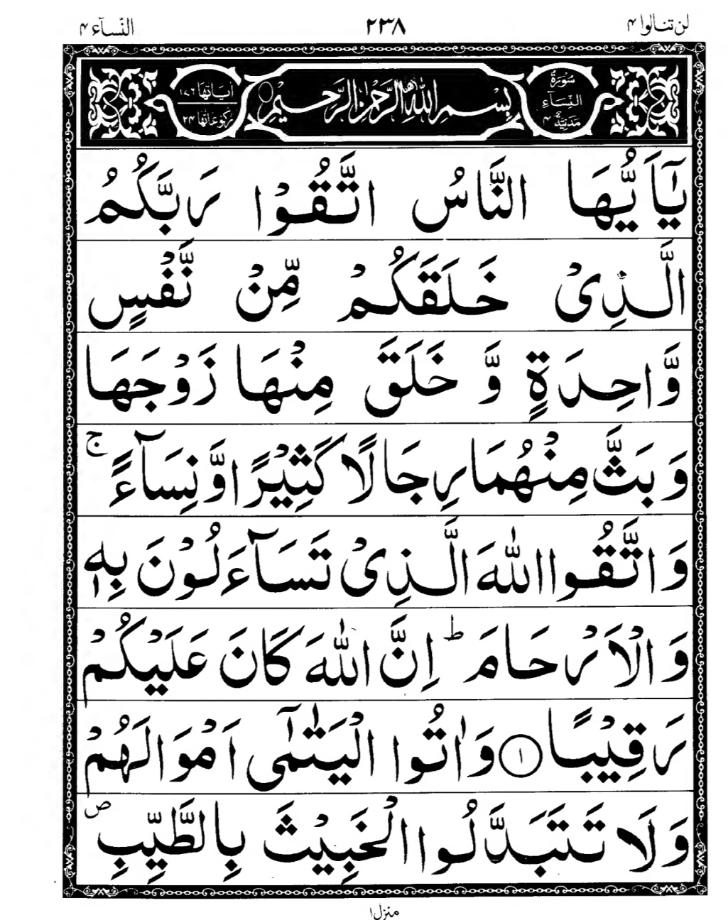 لن تنالوا ۴
۲۳۸
النّسآء ۴
سُوْرَةُ
النِّسَآءِ
مَدَنِيَّةٌ ۴
بِسْمِ اللّٰهِ الرَّحْمٰنِ الرَّحِيْمِ
اٰيَاتُهَا ۱۷۶
رُكُوْعَاتُهَا ۲۴
يٰۤاَيُّهَا النَّاسُ اتَّقُوْا رَبَّكُمُ
الَّذِىْ خَلَقَكُمْ مِّنْ نَّفْسٍ
وَّاحِدَةٍ وَّ خَلَقَ مِنْهَا زَوْجَهَا
وَ بَثَّ مِنْهُمَا رِجَالًا كَثِيْرًا وَّنِسَآءً ۚ
وَ اتَّقُوا اللّٰهَ الَّذِىْ تَسَآءَلُوْنَ بِهٖ
وَ الْاَرْحَامَ ؕ اِنَّ اللّٰهَ كَانَ عَلَيْكُمْ
رَقِيْبًا ۱ وَ اٰتُوا الْيَتٰمٰٓى اَمْوَالَهُمْ
وَلَا تَتَبَدَّلُوا الْخَبِيْثَ بِالطَّيِّبِ ۪
منزل ۱